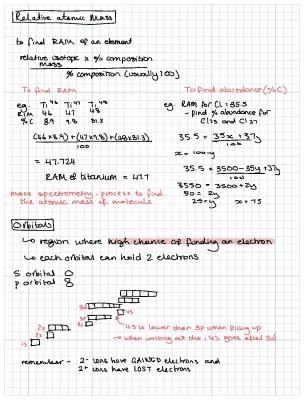 Relative atomic Mass
to find RAM of an element
relative isotopic mass x % composition
% composition (usually 100)
To find RAM
To find abundance (% C)
eg. Ti 46 Ti 47 Ti 48
RIM 46 47 48
% C 8.9 9.8 81.3
(46x8.9)+(47x9.8)+(48x81.3)
100
= 47.724
RAM of titanium = 47.7
eg. RAM for Cl = 35.5
- find % abundance for
Cl 35 and Cl 37
35.5 = 35x + 37y
100
x = 100-y
35.5 = 3500-35y+37y
100
3550 = 3500+2y
50 = 2y
25=y x = 75
mass spectrometry - process to find
the atomic mass of molecule
Orbitals
↳ region where high chance of finding an electron
↳ each orbital can hold 2 electrons
S orbital O
p orbital 8
3d
3p
3s
2p
2s
1s
4s is lower than 3d when filling up
- when writing out the 4s goes after 3d
remember - 2- ions have GAINED electrons and
2+ ions have LOST electrons